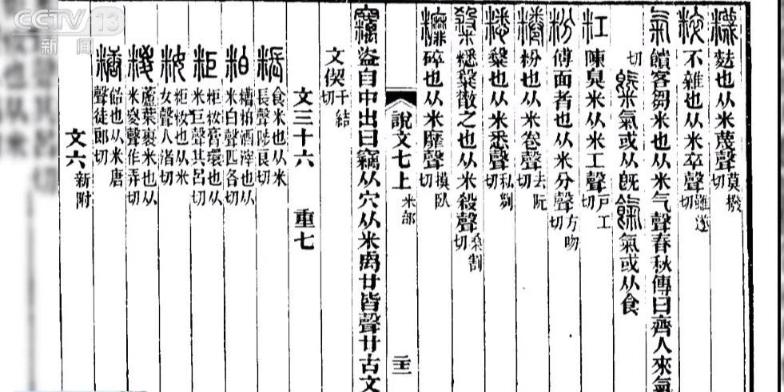 䊳麩也从米蔑聲莫撥切
粹不雜也从米卒聲雖遂切
氣饋客芻米也从米气聲春秋傳曰齊人來氣
切 氣或从旣 餼氣或从食
粠陳臭米从米工聲戶工切
粉傅面者也从米分聲方吻切
粉也从米卷聲去阮切
也从米悉聲私列切
散之也从米殺聲桑割切
碎也从米靡聲摸臥切
說文七上 米部
竊盜自中出曰竊从穴从米禼廿皆聲廿古文
文偰千結切
文三十六 重七
粻食米也从米長聲陟良切
粕糟粕酒滓也从米白聲匹各切
粔粔籹膏環也从米巨聲其呂切
籹粔籹也从米女聲人渚切
糉蘆葉裹米也从米㚇聲作弄切
糖飴也从米唐聲徒郎切
文六 新附
CCTV 13
新闻